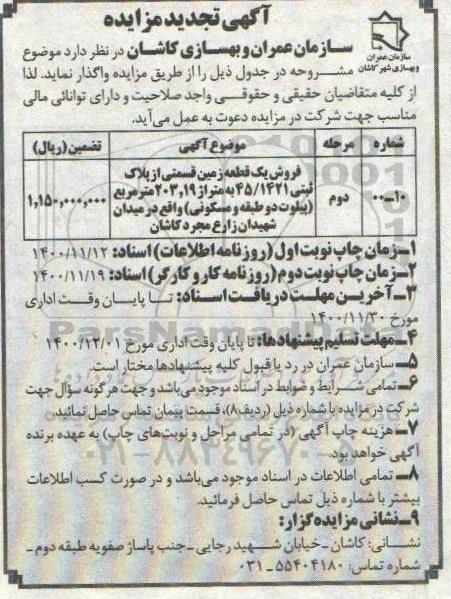 آگهی تجدید مزایده
سازمان عمران
و بهسازی شهر کاشان
سازمان عمران و بهسازی کاشان در نظر دارد موضوع
مشروحه در جدول ذیل را از طریق مزایده واگذار نماید. لذا
از کلیه متقاضیان حقیقی و حقوقی واجد صلاحیت و دارای توانائی مالی
مناسب جهت شرکت در مزایده دعوت به عمل می‌آید.
شماره مرحله موضوع آگهی تضمین (ریال)
۱۰-۰۰ دوم فروش یک قطعه زمین قسمتی از پلاک
ثبتی ۴۵/۱۴۲۱ به متراژ ۲۰۳,۱۹ مترمربع
(پیلوت دو طبقه و مسکونی) واقع در میدان
شهیدان زارع مجرد کاشان
۱,۱۵۰,۰۰۰,۰۰۰
۱ـ زمان چاپ نوبت اول (روزنامه اطلاعات) اسناد: ۱۴۰۰/۱۱/۱۲
۲ـ زمان چاپ نوبت دوم (روزنامه کار و کارگر) اسناد: ۱۴۰۰/۱۱/۱۹
۳ـ آخرین مهلت دریافت اسناد: تا پایان وقت اداری
مورخ ۱۴۰۰/۱۱/۳۰
۴ـ مهلت تسلیم پیشنهادها: تا پایان وقت اداری مورخ ۱۴۰۰/۱۲/۰۱
۵ـ سازمان عمران در رد یا قبول کلیه پیشنهادها مختار است.
۶ـ تمامی شرایط و ضوابط در اسناد موجود می‌باشد و جهت هرگونه سؤال جهت
شرکت در مزایده با شماره ذیل (ردیف ۸)، قسمت پیمان تماس حاصل نمائید.
۷ـ هزینه چاپ آگهی (در تمامی مراحل و نوبت‌های چاپ) به عهده برنده
آگهی خواهد بود.
۸ـ تمامی اطلاعات در اسناد موجود می‌باشد و در صورت کسب اطلاعات
بیشتر با شماره ذیل تماس حاصل فرمائید.
۹ـ نشانی مزایده‌گزار:
نشانی: کاشان ـ خیابان شهید رجایی ـ جنب پاساژ صفویه طبقه دوم ـ
شماره تماس: ۵۵۴۰۴۱۸۰ ـ ۰۳۱
ParsNamadData
۰۲۱-۸۸۳۴۹۶۷۰-۵